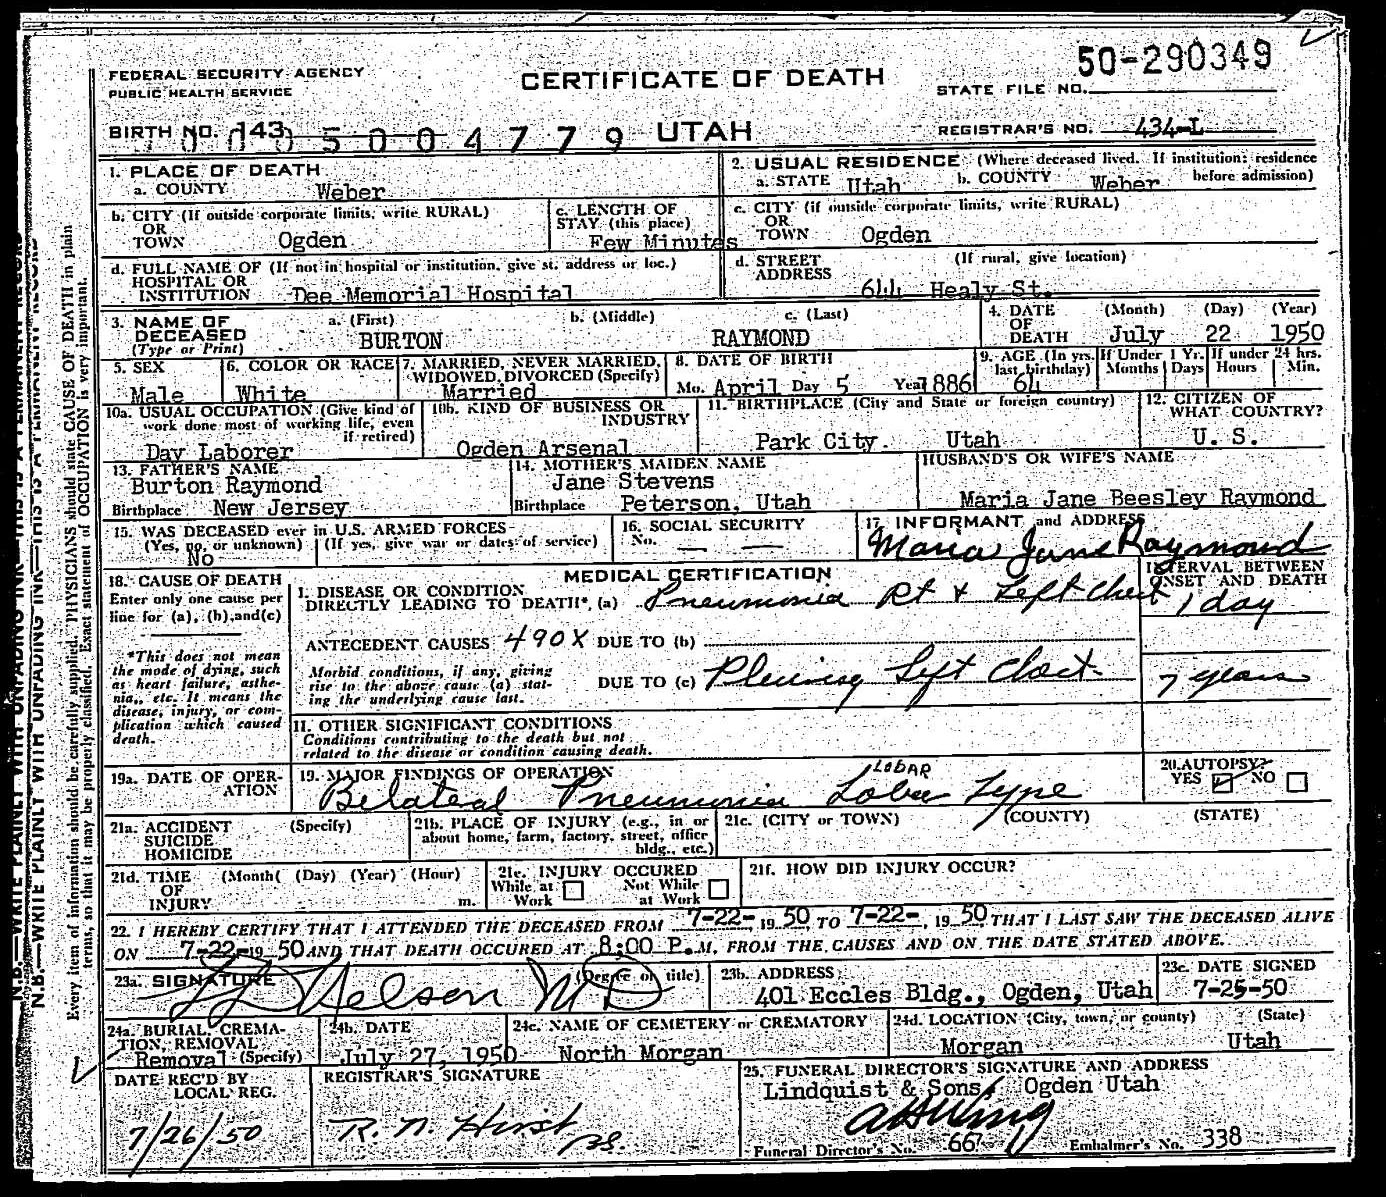 50-290349
FEDERAL SECURITY AGENCY
PUBLIC HEALTH SERVICE
CERTIFICATE OF DEATH
STATE FILE NO.
BIRTH NO. 143
0005004779 UTAH
REGISTRAR'S NO. 434-L
1. PLACE OF DEATH
a. COUNTY Weber
2. USUAL RESIDENCE (Where deceased lived. If institution: residence before admission)
a. STATE Utah b. COUNTY Weber
b. CITY (If outside corporate limits, write RURAL)
OR
TOWN Ogden
c. LENGTH OF
STAY (this place)
Few Minutes
c. CITY (if outside corporate limits, write RURAL)
OR
TOWN Ogden
d. FULL NAME OF (If not in hospital or institution, give st. address or loc.)
HOSPITAL OR
INSTITUTION Dee Memorial Hospital
d. STREET (If rural, give location)
ADDRESS
644 Healy St.
3. NAME OF DECEASED
(Type or Print)
a. (First) b. (Middle) c. (Last)
BURTON RAYMOND
4. DATE OF DEATH (Month) (Day) (Year)
July 22 1950
5. SEX
Male
6. COLOR OR RACE
White
7. MARRIED, NEVER MARRIED,
WIDOWED, DIVORCED (Specify)
Married
8. DATE OF BIRTH
Mo. April Day 5 Year 1886
9. AGE (In yrs. last birthday)
64
If Under 1 Yr. Months Days
If under 24 hrs. Hours Min.
10a. USUAL OCCUPATION (Give kind of
work done most of working life, even
if retired)
Day Laborer
10b. KIND OF BUSINESS OR
INDUSTRY
Ogden Arsenal
11. BIRTHPLACE (City and State or foreign country)
Park City. Utah
12. CITIZEN OF
WHAT COUNTRY?
U. S.
13. FATHER'S NAME
Burton Raymond
Birthplace New Jersey
14. MOTHER'S MAIDEN NAME
Jane Stevens
Birthplace Peterson, Utah
HUSBAND'S OR WIFE'S NAME
Maria Jane Beesley Raymond
15. WAS DECEASED ever in U.S. ARMED FORCES
(Yes, no, or unknown) (If yes, give war or dates of service)
No
16. SOCIAL SECURITY
No. — —
17. INFORMANT and ADDRESS
Maria Jane Raymond
18. CAUSE OF DEATH
Enter only one cause per
line for (a), (b), and (c)
*This does not mean
the mode of dying, such
as heart failure, asthe-
nia,, etc. It means the
disease, injury, or com-
plication which caused
death.
MEDICAL CERTIFICATION
INTERVAL BETWEEN
ONSET AND DEATH
I. DISEASE OR CONDITION
DIRECTLY LEADING TO DEATH*. (a) Pneumonia Rt + Left Chest 1 day
ANTECEDENT CAUSES 490X DUE TO (b)
Morbid conditions, if any, giving
rise to the above cause (a) stat-
ing the underlying cause last.
DUE TO (c) Pleurisy Left Chest 7 years
11. OTHER SIGNIFICANT CONDITIONS
Conditions contributing to the death but not
related to the disease or condition causing death.
19a. DATE OF OPER-
ATION
19. MAJOR FINDINGS OF OPERATION
LOBAR
Bilateral Pneumonia Lober Type
20. AUTOPSY?
YES NO
21a. ACCIDENT
SUICIDE
HOMICIDE
(Specify)
21b. PLACE OF INJURY (e.g., in or
about home, farm, factory, street, office
bldg., etc.)
21c. (CITY or TOWN) (COUNTY) (STATE)
21d. TIME
OF
INJURY
(Month( (Day) (Year) (Hour)
m.
21e. INJURY OCCURED
While at Work Not While at Work
21f. HOW DID INJURY OCCUR?
22. I HEREBY CERTIFY THAT I ATTENDED THE DECEASED FROM 7-22-, 19 50, TO 7-22-, 19 50, THAT I LAST SAW THE DECEASED ALIVE
ON 7-22-19 50 AND THAT DEATH OCCURED AT 8:00 P.M, FROM THE CAUSES AND ON THE DATE STATED ABOVE.
23a. SIGNATURE (Degree or title)
Nelson MD
23b. ADDRESS
401 Eccles Bldg., Ogden, Utah
23c. DATE SIGNED
7-25-50
24a. BURIAL, CREMA-
TION, REMOVAL
Removal (Specify)
24b. DATE
July 27, 1950
24c. NAME OF CEMETERY or CREMATORY
North Morgan
24d. LOCATION (City, town, or county) (State)
Morgan Utah
DATE REC'D BY
LOCAL REG.
7/26/50
REGISTRAR'S SIGNATURE
R. N. Hirst
25. FUNERAL DIRECTOR'S SIGNATURE AND ADDRESS
Lindquist & Sons, Ogden Utah
Funeral Director's No. 667 Embalmer's No. 338
N.B.—WRITE PLAINLY WITH UNFADING INK—THIS IS A PERMANENT RECORD
Every item of information should be carefully supplied. PHYSICIANS should state CAUSE OF DEATH in plain
terms, so that it may be properly classified. Exact statement of OCCUPATION is very important.